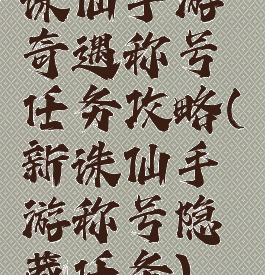 诛仙手游
奇遇称号
任务攻略(
新诛仙手
游称号隐
藏任务)